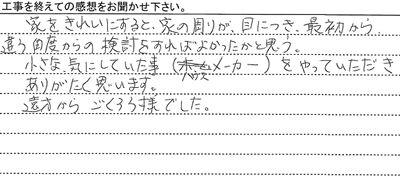 工事を終えての感想をお聞かせ下さい。
家をきれいにすると、家の周りが、目につき、最初から
違う角度からの検討をすればよかったかと思う。
小さな気にしていた事（ハウスメーカー）をやっていただき
ありがたく思います。
遠方から ごくろう様でした。